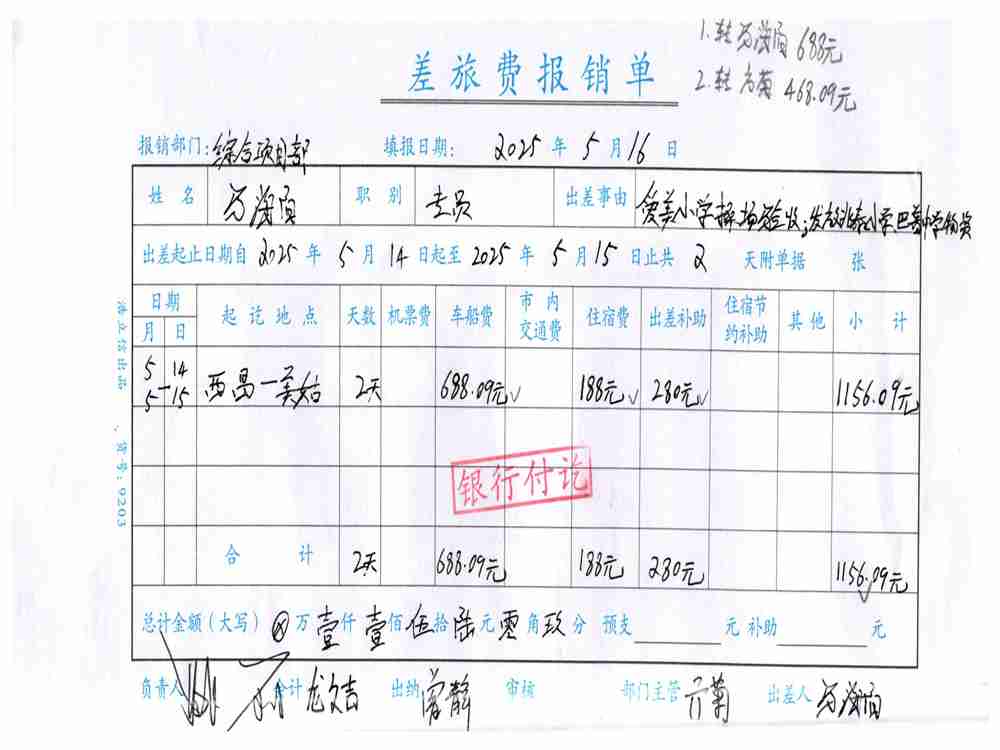 1.转马海
688元
2.转 菊 468.09元
差旅费报销单
报销部门:综合项目部 填报日期: 2025 年 5 月 16 日
姓名 马海 职别 专员 出差事由 小学 场验收;发放 小学 巴普小学物资
出差起止日期自 2025 年 5 月 14 日起至 2025 年 5 月 15 日止共 2 天附单据 张
日期 起讫地点 天数 机票费 车船费 市内交通费 住宿费 出差补助 住宿节约补助 其他 小计
月 日
5 14 — 5 15 西昌—美姑 2天 688.09元✓ 188元✓ 280元✓ 1156.09元
银行付讫
合计 2天 688.09元 188元 280元 1156.09元
总计金额(大写) ⊗ 万 壹 仟 壹 佰 伍 拾 陆 元 零 角 玖 分 预支 元 补助 元
负责人 会计 龙文吉 出纳 曾静 审核 部门主管 菊 出差人 马海
货号:9203